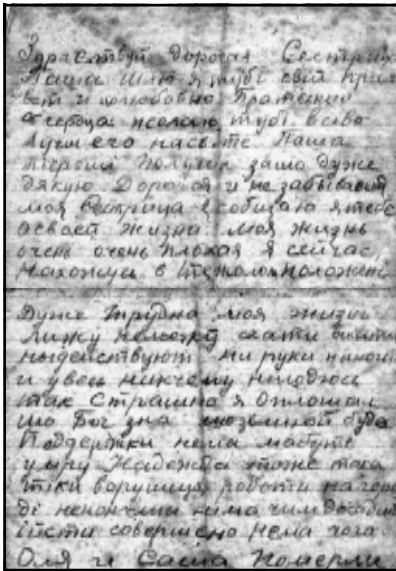 Здраствуй дорогая Сестриц
Паша Шлю я тубі свій прив
вет и с любовю братский
от сердца желаю тубі всіво
лучшего на світе Паша
Получил зашо дуже
дякую Дорогая и не забываєш
моя Сестрица сообщаю я тебе
о своєй жизни моя жизнь
очень очень плохая я сейчас
нахожусь в тежолом положені
Дуже трудна моя жизнь
лижу не можу
недействуют ни руки ни ноги
и увесь никчему негодюсь
так страшно я оплошал
шо Бог зна шо зо мной буде
Поддержки нема мабуть
умру Надежда тоже така
тіки ворушиця роботи на горо
ді нема чим
їсти совершено нема чого
Оля и Саша померли